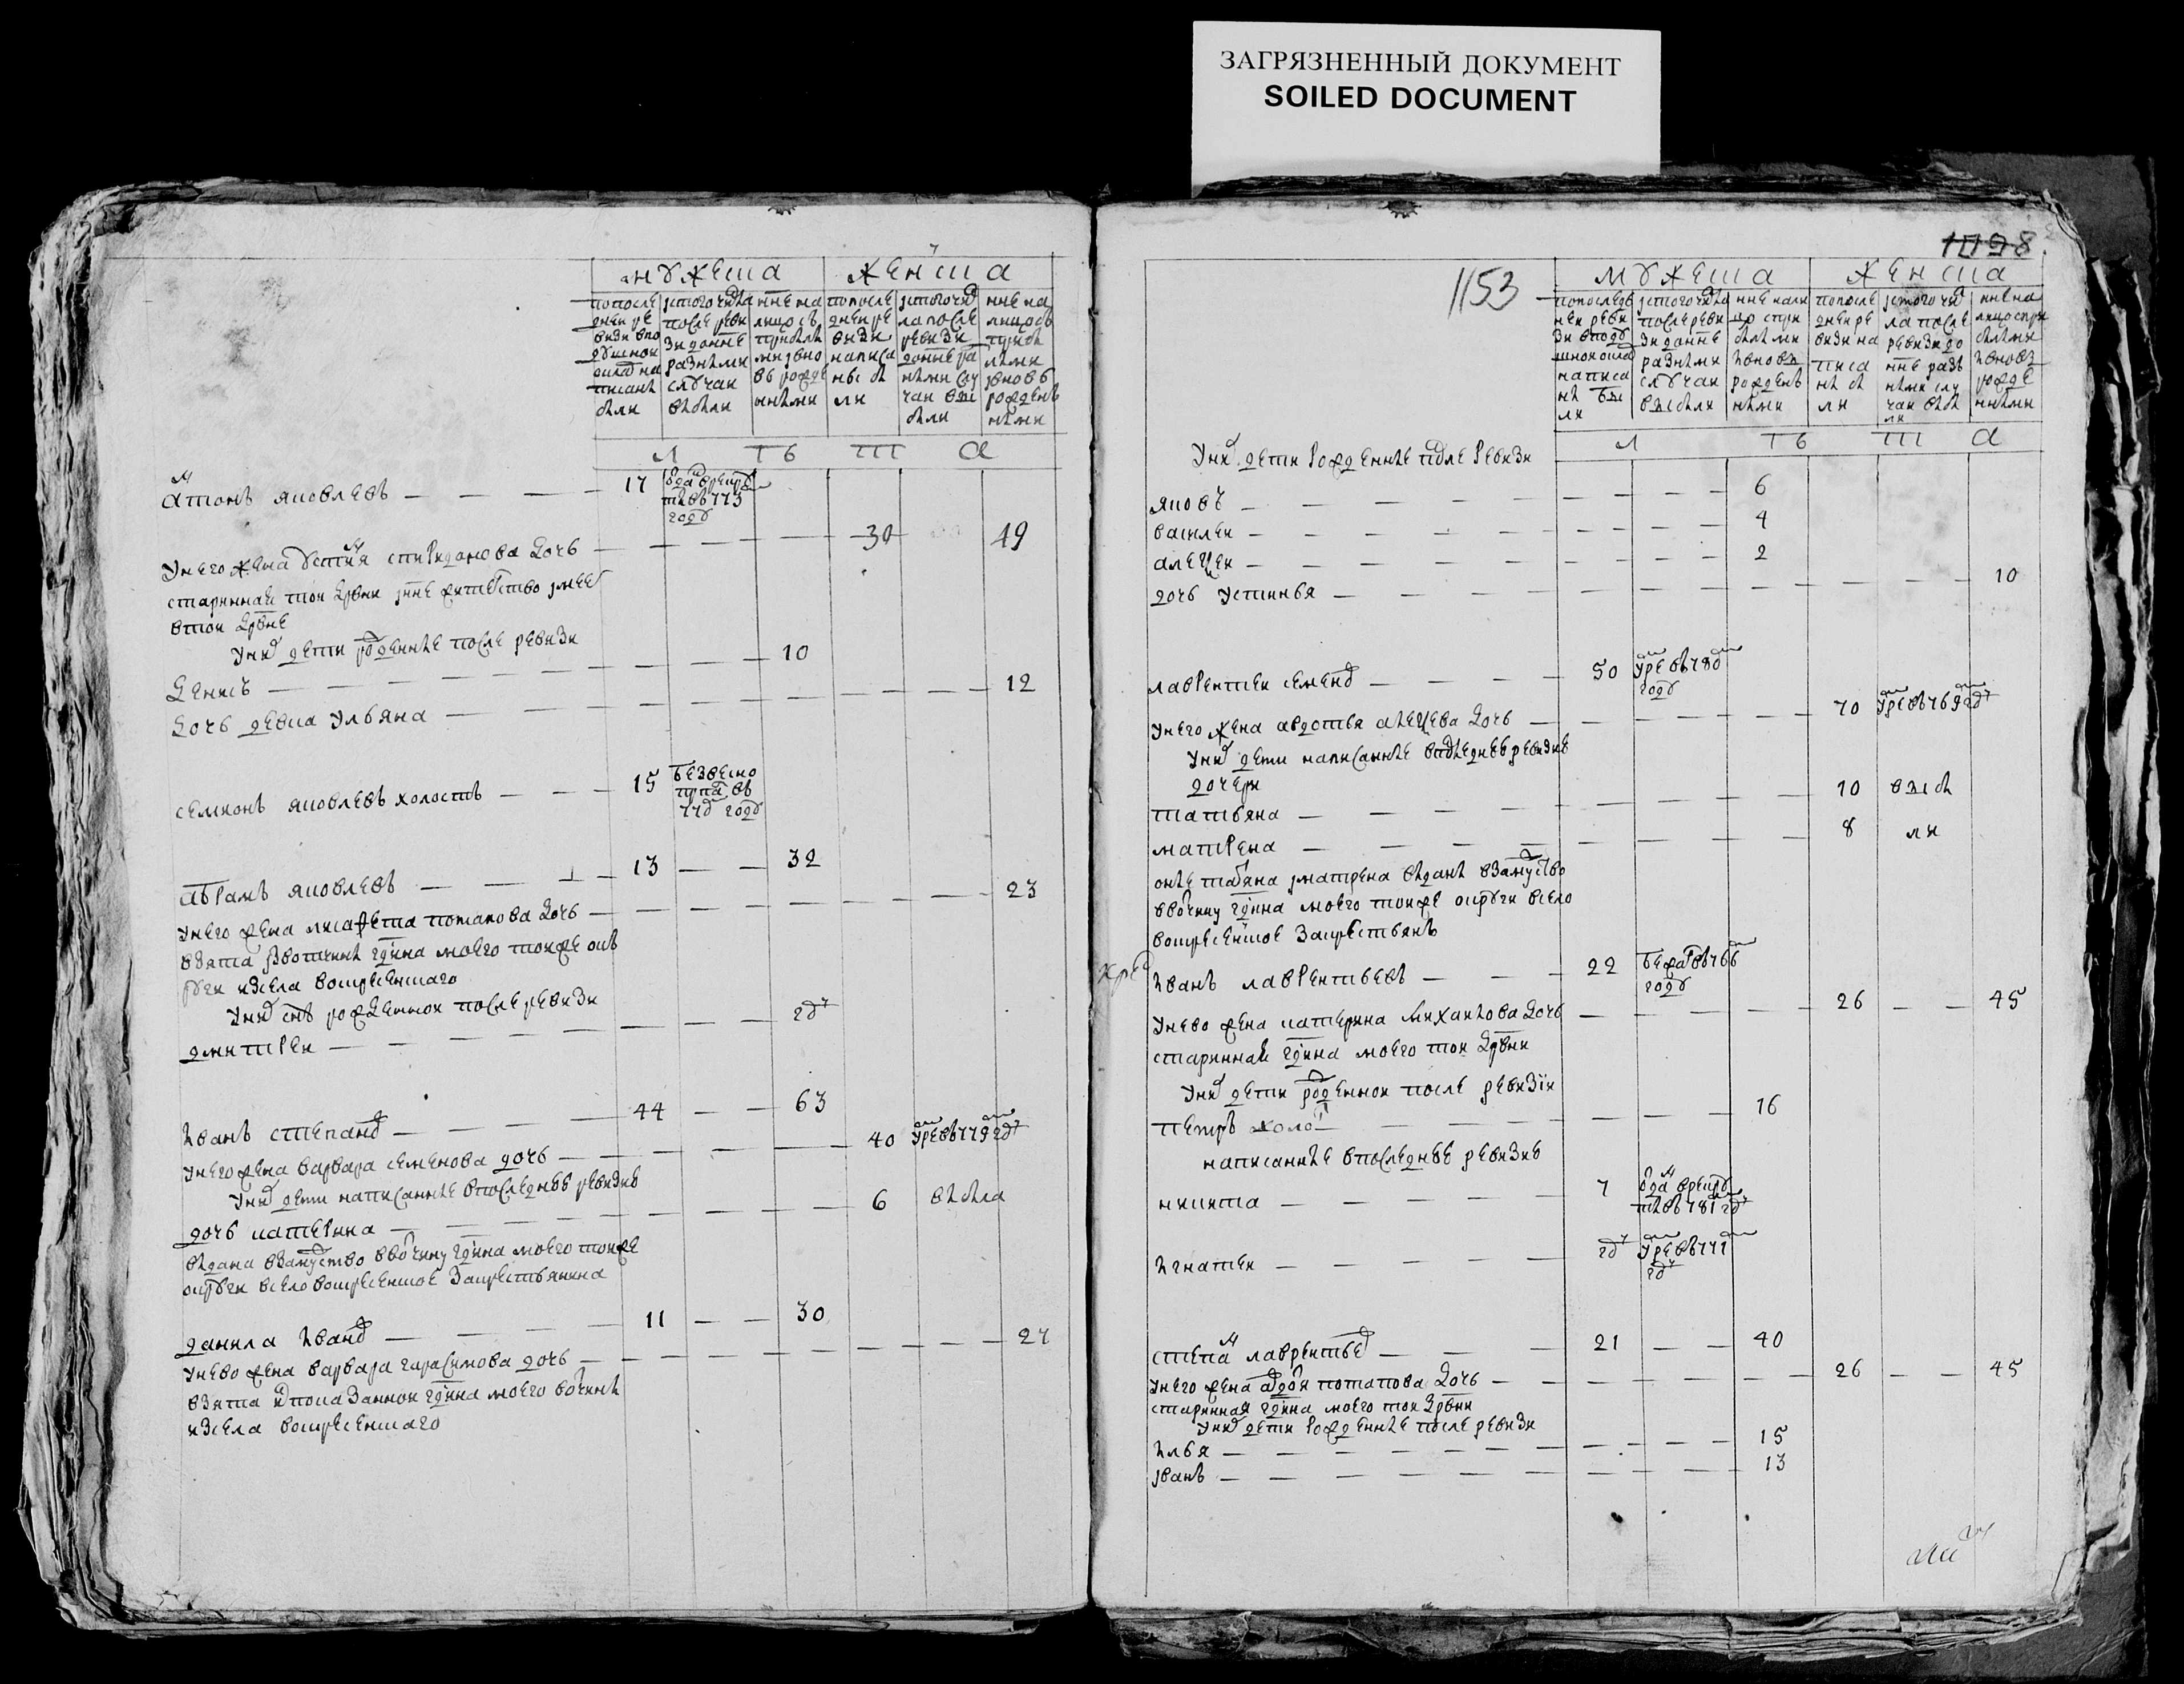 ЗАГРЯЗНЕННЫЙ ДОКУМЕНТ
SOILED DOCUMENT
мужеска женска
по последней ревизи в подушной оклад написаны были
ис того числа после ревизи до нне разными случаи выбыли
ныне на лицо съ прибылми и вновь рожденными
по последней ревизи написаны были
ис того числа после ревизи до нне разными случаи выбыли
ныне на лицо съ прибылми и вновь рожденными
л т ъ т а
Атонъ яковлевъ — — — 17 отда в рекруты въ 773 году
У него жена устиня спиридонова дочь — — — — 30 49
стариннаы той дрвни и нне жителство имеет
в той дрвне
У них дети рожденные после ревизи
Денисъ — — — — — 10
дочь девка ульяна — — — — — 12
семионъ яковлевъ холостъ — — — 15 безвесно пропа въ 770 году
абрамъ яковлевъ — — — 13 — — 32
У него жена лисафета потапова дочь — — — — — 23
взята из вотчины гдина моего той же ок
руги из села воскресенскаго
У них снъ рожденной после ревизи
дмитрей — — — — — год
Иванъ степано — — — 44 — — 63
У него жена варвара семенова дочь — — — — 40 умре въ 779 год
У них дети написанные в последнеѣ ревизиѣ
дочь катерина — — — — 6 выбыла
выдана в замуство в вочину гдина моего той же
округи в село воскресенское за крестьянина
данила Ивано — — — 11 — — 30
У нево жена варвара гарасимова дочь — — — — — 27
взята ис показанной гдина моего вочины
из села воскресенскаго
1098
1153
мужеска женска
по последней ревизи в подушной оклад написаны были
ис того числа после ревизи до нне разными случаи выбыли
нне на лицо с прибылыми и вновь рожденными
по последней ревизи написаны были
ис того числа после ревизи до нне разными случаи выбыли
нне на лицо с прибылыми и вновь рожденными
л т ъ т а
У них дети рожденные после ревизи
яковъ — — — — — 6
василей — — — — — 4
алексей — — — — — 2
дочь устинья — — — — — 10
лаврентей семено — — — 50 умре въ 780 году
У него жена авдотья алексева дочь — — — — 70 умре въ 769 год
У них дети написанные в последнеѣ ревизиѣ
дочери
татьяна — — — — 10 выбы
матрена — — — — 8 ли
оные татьяна и матрена выданы в замуство
в вочину гдина моего той же округи в село
воскресенское за крестьянъ
Иванъ лаврентьевъ — — — 22 бежа въ 766 году
У нево жена катерина михаилова дочь — — — — 26 — — 45
стариннаы гдина моего той дрвни
У них дети рожденной после ревизіи
петръ холо — — — — — 16
написанные в последнеѣ ревизиѣ
никита — — — — 7 отда в рекруты въ 781 год
Игнатей — — — — год умре въ 771 год
степа лаврентье — — — 21 — — 40
У него жена потапова дочь — — — — 26 — — 45
старинная гдина моего той дрвни
У них дети рожденные после ревизи
Илья — — — — — 15
иванъ — — — — — 13